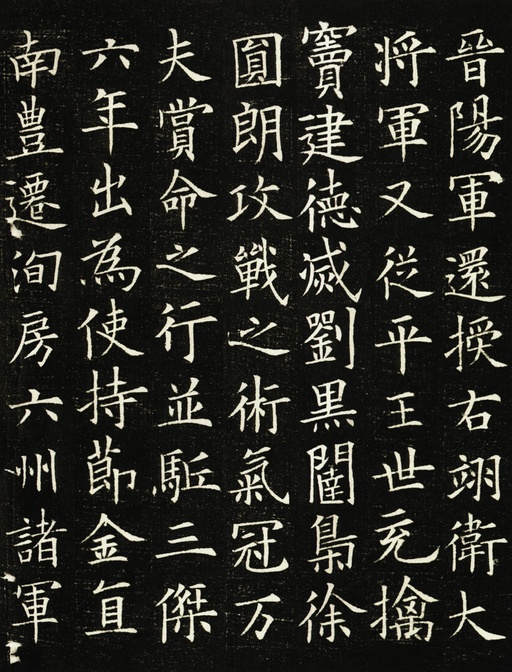 晉陽軍還授右翊衛大
将軍又從平王世充擒
竇建德滅劉黑闥梟徐
圓朗攻戰之術氣冠万
夫賞命之行並駈三傑
六年出為使持節金冝
南豊遷洵房六州諸軍